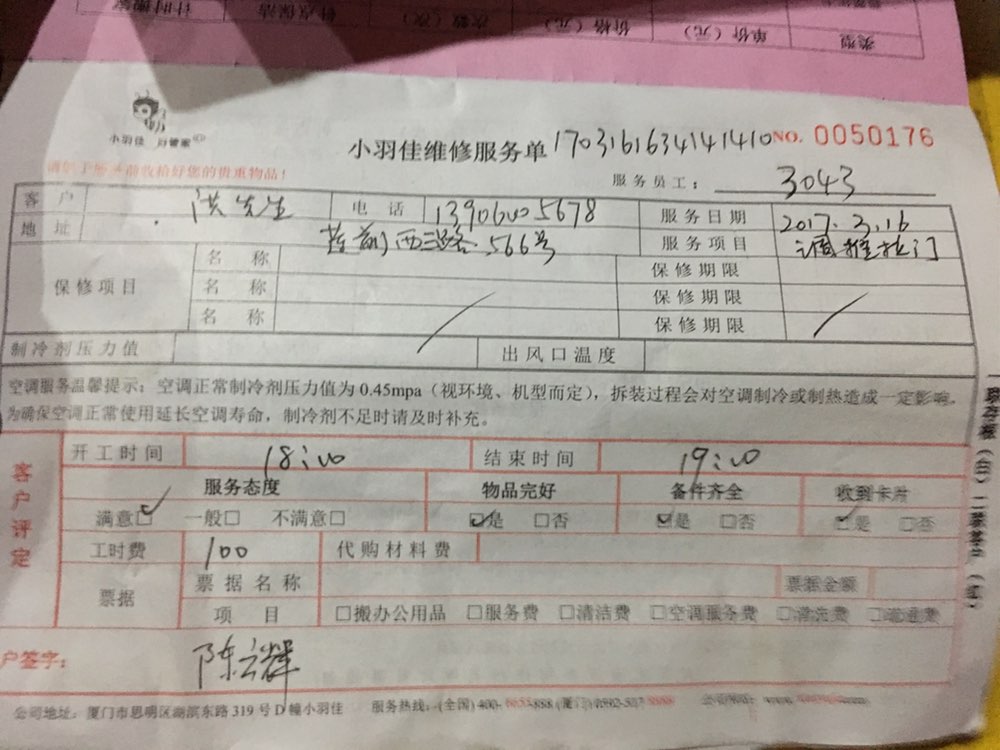 类型 单价（元） 价格（元） 次数（次） 计时搬家
小羽佳
小羽佳维修服务单 1703161634141410 NO. 0050176
前收拾好您的贵重物品！
服务员工： 3043
客户 洪先生 电话 13906005678 服务日期 2017.3.16
地址 西二路 566号 服务项目 调推拉门
保修项目 名称 保修期限
名称 保修期限
名称 保修期限
制冷剂压力值 出风口温度
空调服务温馨提示：空调正常制冷剂压力值为0.45mpa（视环境、机型而定），拆装过程会对空调制冷或制热造成一定影响，
为确保空调正常使用延长空调寿命，制冷剂不足时请及时补充。
客户评定
开工时间 18:00 结束时间 19:00
服务态度 物品完好 备件齐全 收到卡片
满意☑ 一般□ 不满意□ ☑是 □否 ☑是 □否 ☑是 □否
工时费 100 代购材料费
票据 票据名称 票据金额
项目 □搬办公用品 □服务费 □清洁费 □空调服务费 □清洗费
户签字： 陈云辉
公司地址：厦门市思明区湖滨东路319号D幢小羽佳 服务热线：(全国)400-